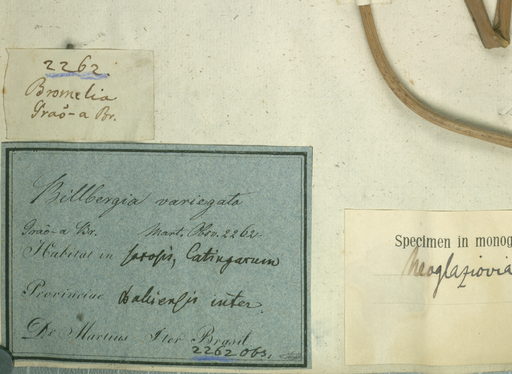 2262.
Bromelia
Graö-a Br.
Billbergia variegata
Graö-a Br. Mart. Obs. 2262.
Habitat in saxosis, Catingarum
Provinciae Bahiensis inter.
Dr. Martius Iter Brasil
2262 obs.
Specimen in monog
Neoglaziovia